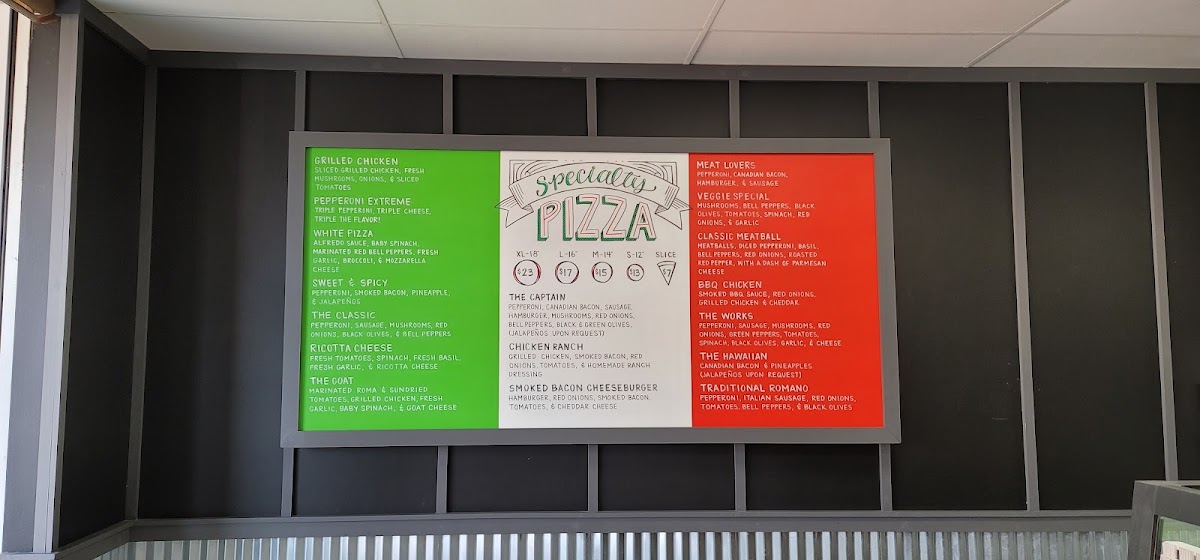 GRILLED CHICKEN
SLICED GRILLED CHICKEN, FRESH
MUSHROOMS, ONIONS, & SLICED
TOMATOES
PEPPERONI EXTREME
TRIPLE PEPPERINI, TRIPLE CHEESE,
TRIPLE THE FLAVOR!
WHITE PIZZA
ALFREDO SAUCE, BABY SPINACH,
MARINATED RED BELL PEPPERS, FRESH
GARLIC, BROCCOLI, & MOZZARELLA
CHEESE
SWEET & SPICY
PEPPERONI, SMOKED BACON, PINEAPPLE,
& JALAPEÑOS
THE CLASSIC
PEPPERONI, SAUSAGE, MUSHROOMS, RED
ONIONS, BLACK OLIVES, & BELL PEPPERS
RICOTTA CHEESE
FRESH TOMATOES, SPINACH, FRESH BASIL,
FRESH GARLIC, & RICOTTA CHEESE
THE GOAT
MARINATED ROMA & SUNDRIED
TOMATOES, GRILLED CHICKEN, FRESH
GARLIC, BABY SPINACH, & GOAT CHEESE
Specialty
PIZZA
XL-18" L-16" M-14" S-12" SLICE
$23 $17 $15 $13 $7
THE CAPTAIN
PEPPERONI, CANADIAN BACON, SAUSAGE,
HAMBURGER, MUSHROOMS, RED ONIONS,
BELL PEPPERS, BLACK & GREEN OLIVES,
(JALAPEÑOS UPON REQUEST)
CHICKEN RANCH
GRILLED CHICKEN, SMOKED BACON, RED
ONIONS, TOMATOES, & HOMEMADE RANCH
DRESSING
SMOKED BACON CHEESEBURGER
HAMBURGER, RED ONIONS, SMOKED BACON,
TOMATOES, & CHEDDAR CHEESE
MEAT LOVERS
PEPPERONI, CANADIAN BACON,
HAMBURGER, & SAUSAGE
VEGGIE SPECIAL
MUSHROOMS, BELL PEPPERS, BLACK
OLIVES, TOMATOES, SPINACH, RED
ONIONS, & GARLIC
CLASSIC MEATBALL
MEATBALLS, DICED PEPPERONI, BASIL,
BELL PEPPERS, RED ONIONS, ROASTED
RED PEPPER, WITH A DASH OF PARMESAN
CHEESE
BBQ CHICKEN
SMOKED BBQ SAUCE, RED ONIONS,
GRILLED CHICKEN & CHEDDAR
THE WORKS
PEPPERONI, SAUSAGE, MUSHROOMS, RED
ONIONS, GREEN PEPPERS, TOMATOES,
SPINACH, BLACK OLIVES, GARLIC, & CHEESE
THE HAWAIIAN
CANADIAN BACON & PINEAPPLES
(JALAPEÑOS UPON REQUEST)
TRADITIONAL ROMANO
PEPPERONI, ITALIAN SAUSAGE, RED ONIONS,
TOMATOES, BELL PEPPERS, & BLACK OLIVES